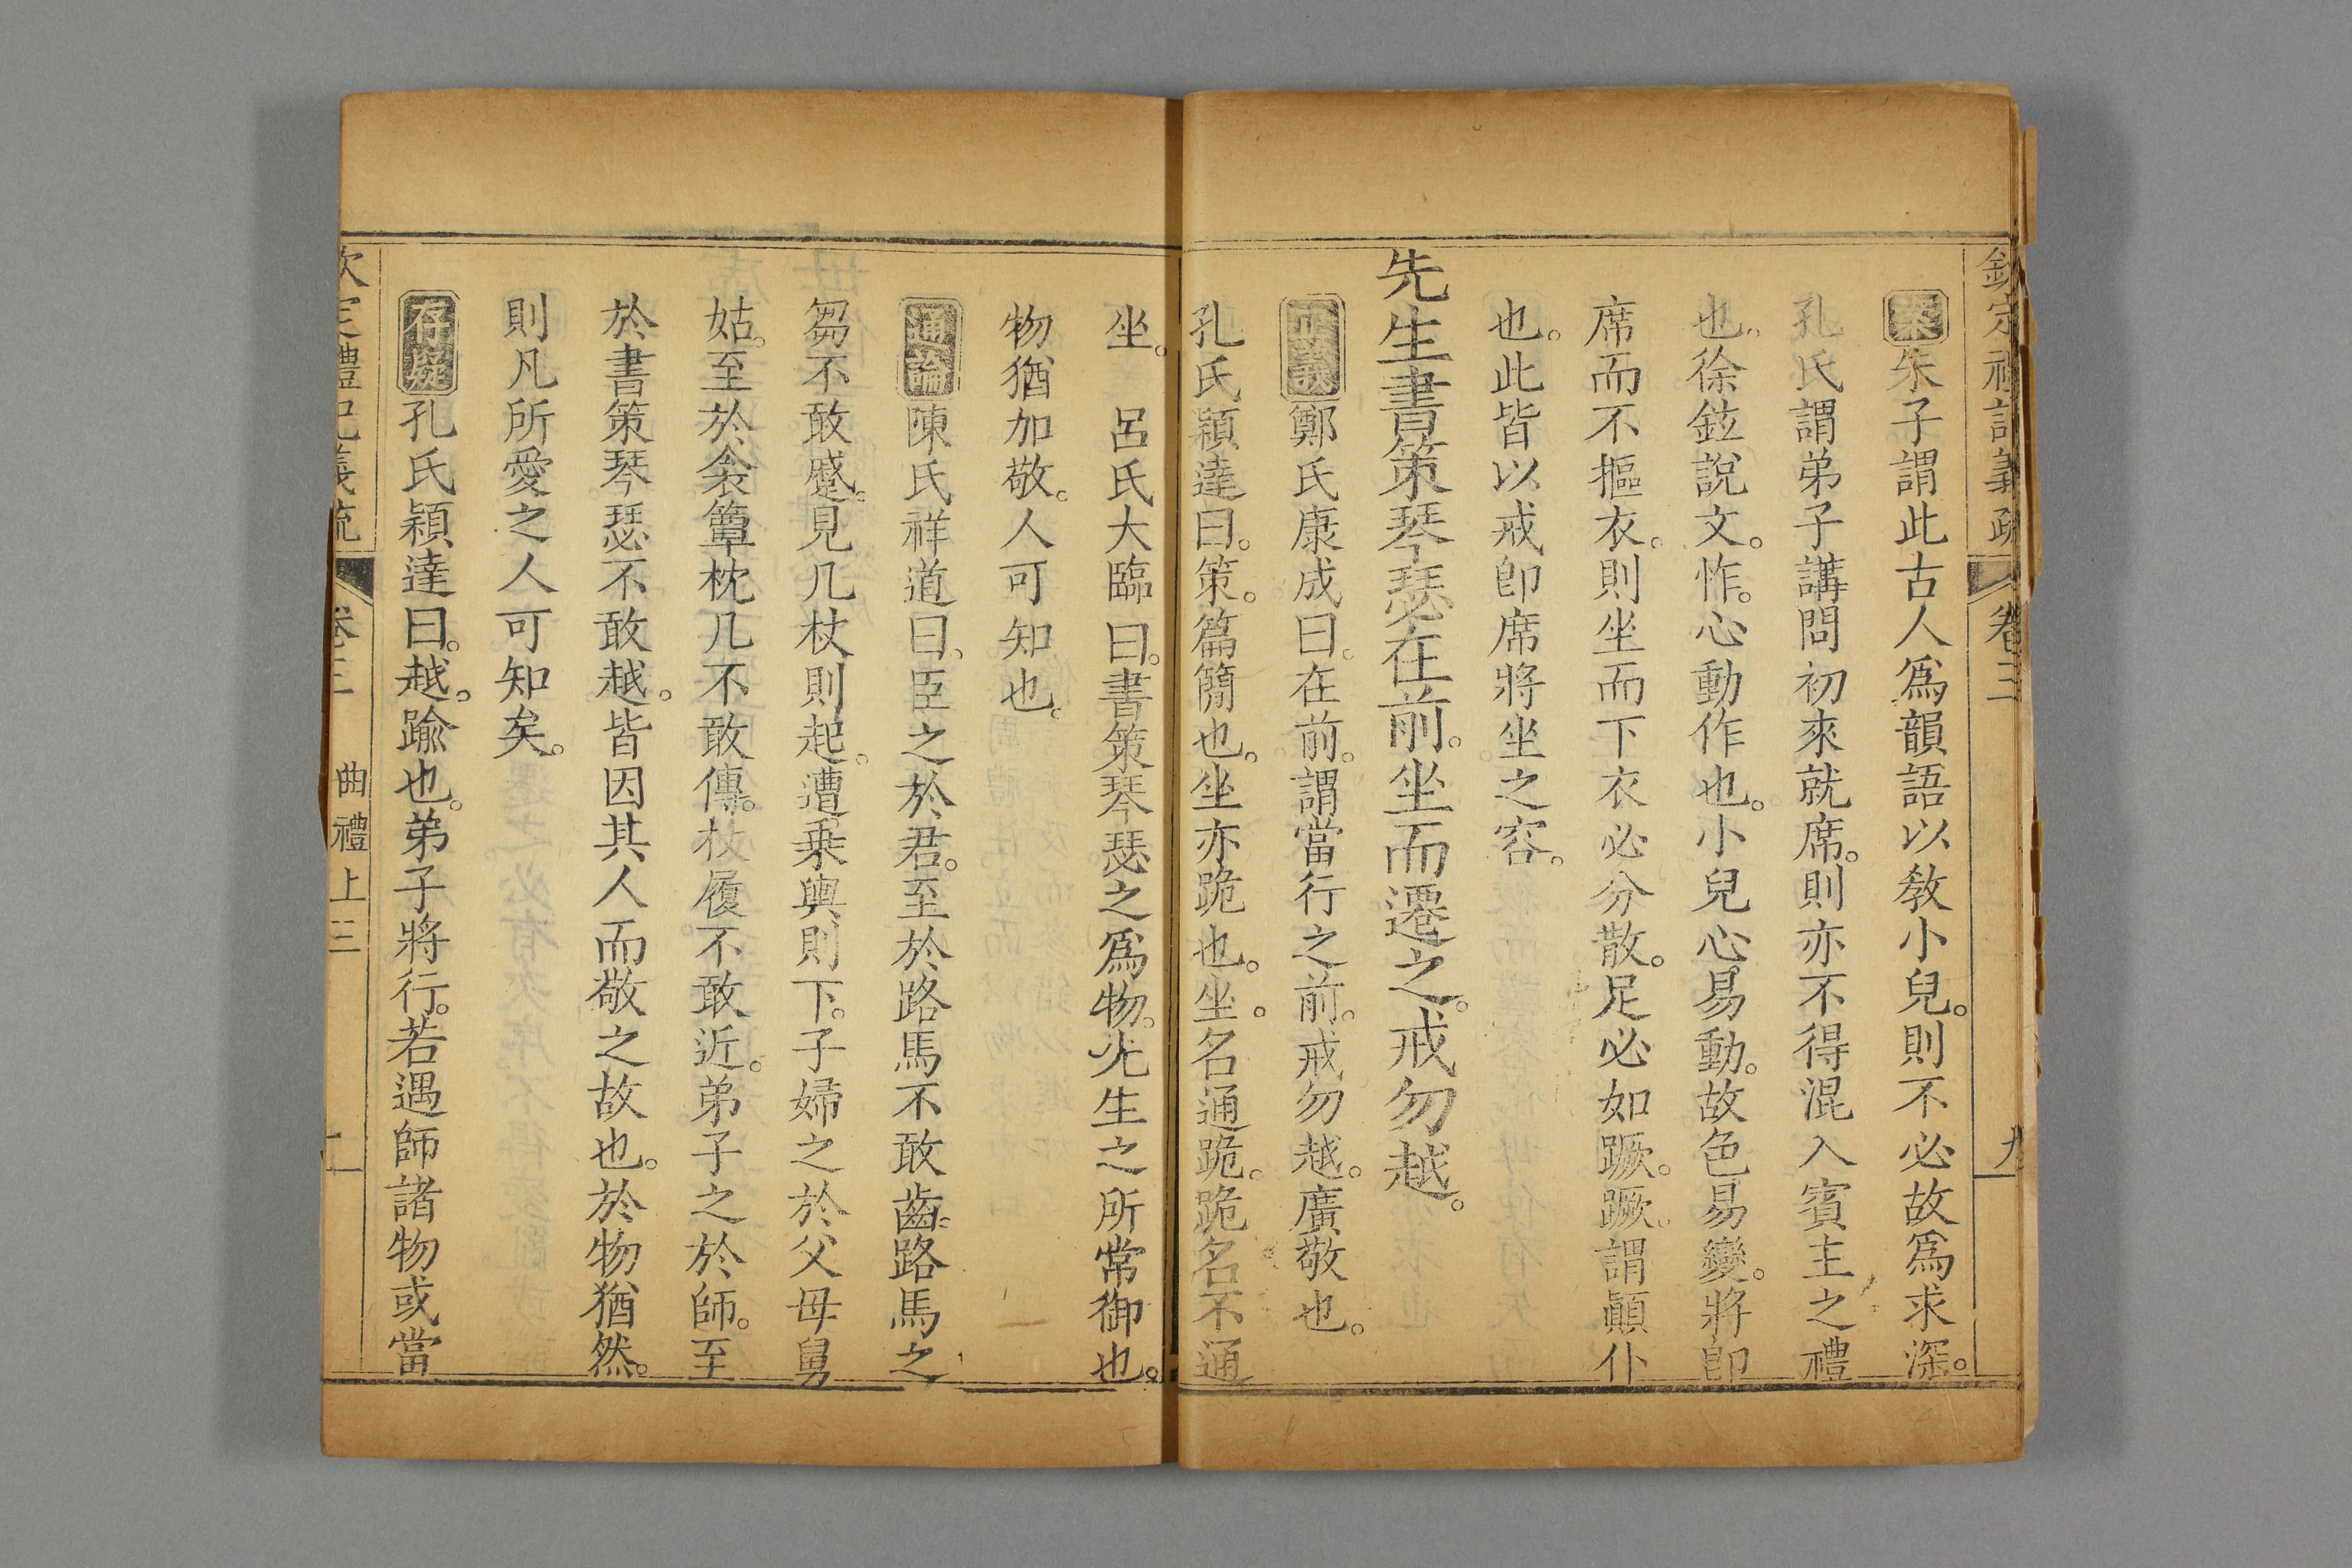 欽定禮記義疏 卷三 九
案朱子謂此古人爲韻語以敎小兒。則不必故爲求深。
孔氏謂弟子講問初來就席。則亦不得混入賓主之禮
也。徐鉉說文。怍。心動作也。小兒心易動。故色易變。將卽
席而不摳衣。則坐而下衣必分散。足必如蹶。蹶。謂顚仆
也。此皆以戒卽席將坐之容。
先生書策琴瑟在前。坐而遷之。戒勿越。
正義鄭氏康成曰。在前。謂當行之前。戒勿越。廣敬也。
孔氏穎達曰。策。篇簡也。坐亦跪也。坐。名通跪。跪名不通
坐。 呂氏大臨曰。書策琴瑟之爲物。先生之所常御也。
物猶加敬。人可知也。
通論陳氏祥道曰、臣之於君。至於路馬不敢齒。路馬之
芻不敢蹙。見几杖則起。遭乗輿則下。子婦之於父母舅
姑。至於衾簟枕几不敢傳。杖履不敢近。弟子之於師。至
於書策琴瑟不敢越。皆因其人而敬之故也。於物猶然。
則凡所愛之人可知矣。
存疑孔氏穎達曰。越。踰也。弟子將行。若遇師諸物或當
欽定禮記義疏 卷三 曲禮上三